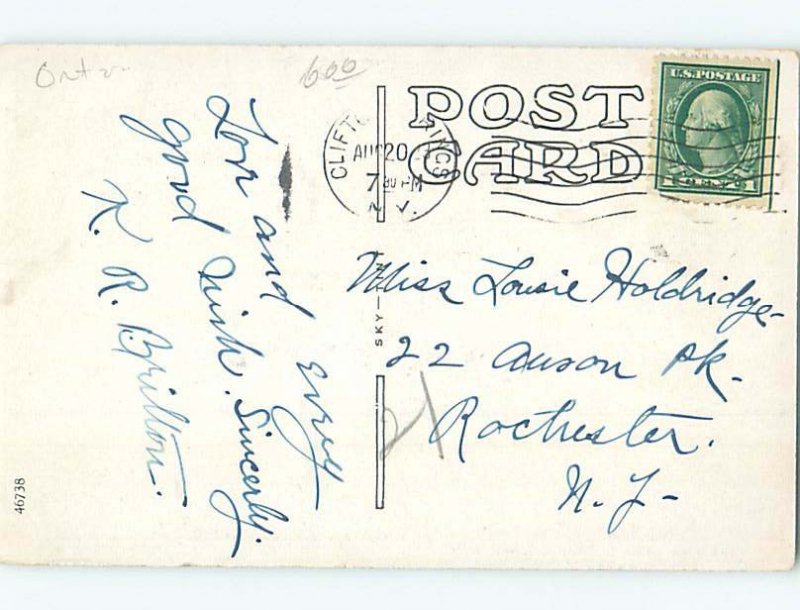 Ont
600
POST
CARD
U.S. POSTAGE
1 CENT 1
CLIFTON SPRINGS
AUG 20
7 30 PM
N.Y.
Love and every
good wish. Sincerly.
K. R. Britton.
SKY-
Miss Lousie Holdridge
22 Anson Pk.
Rochester.
N.Y-
46738